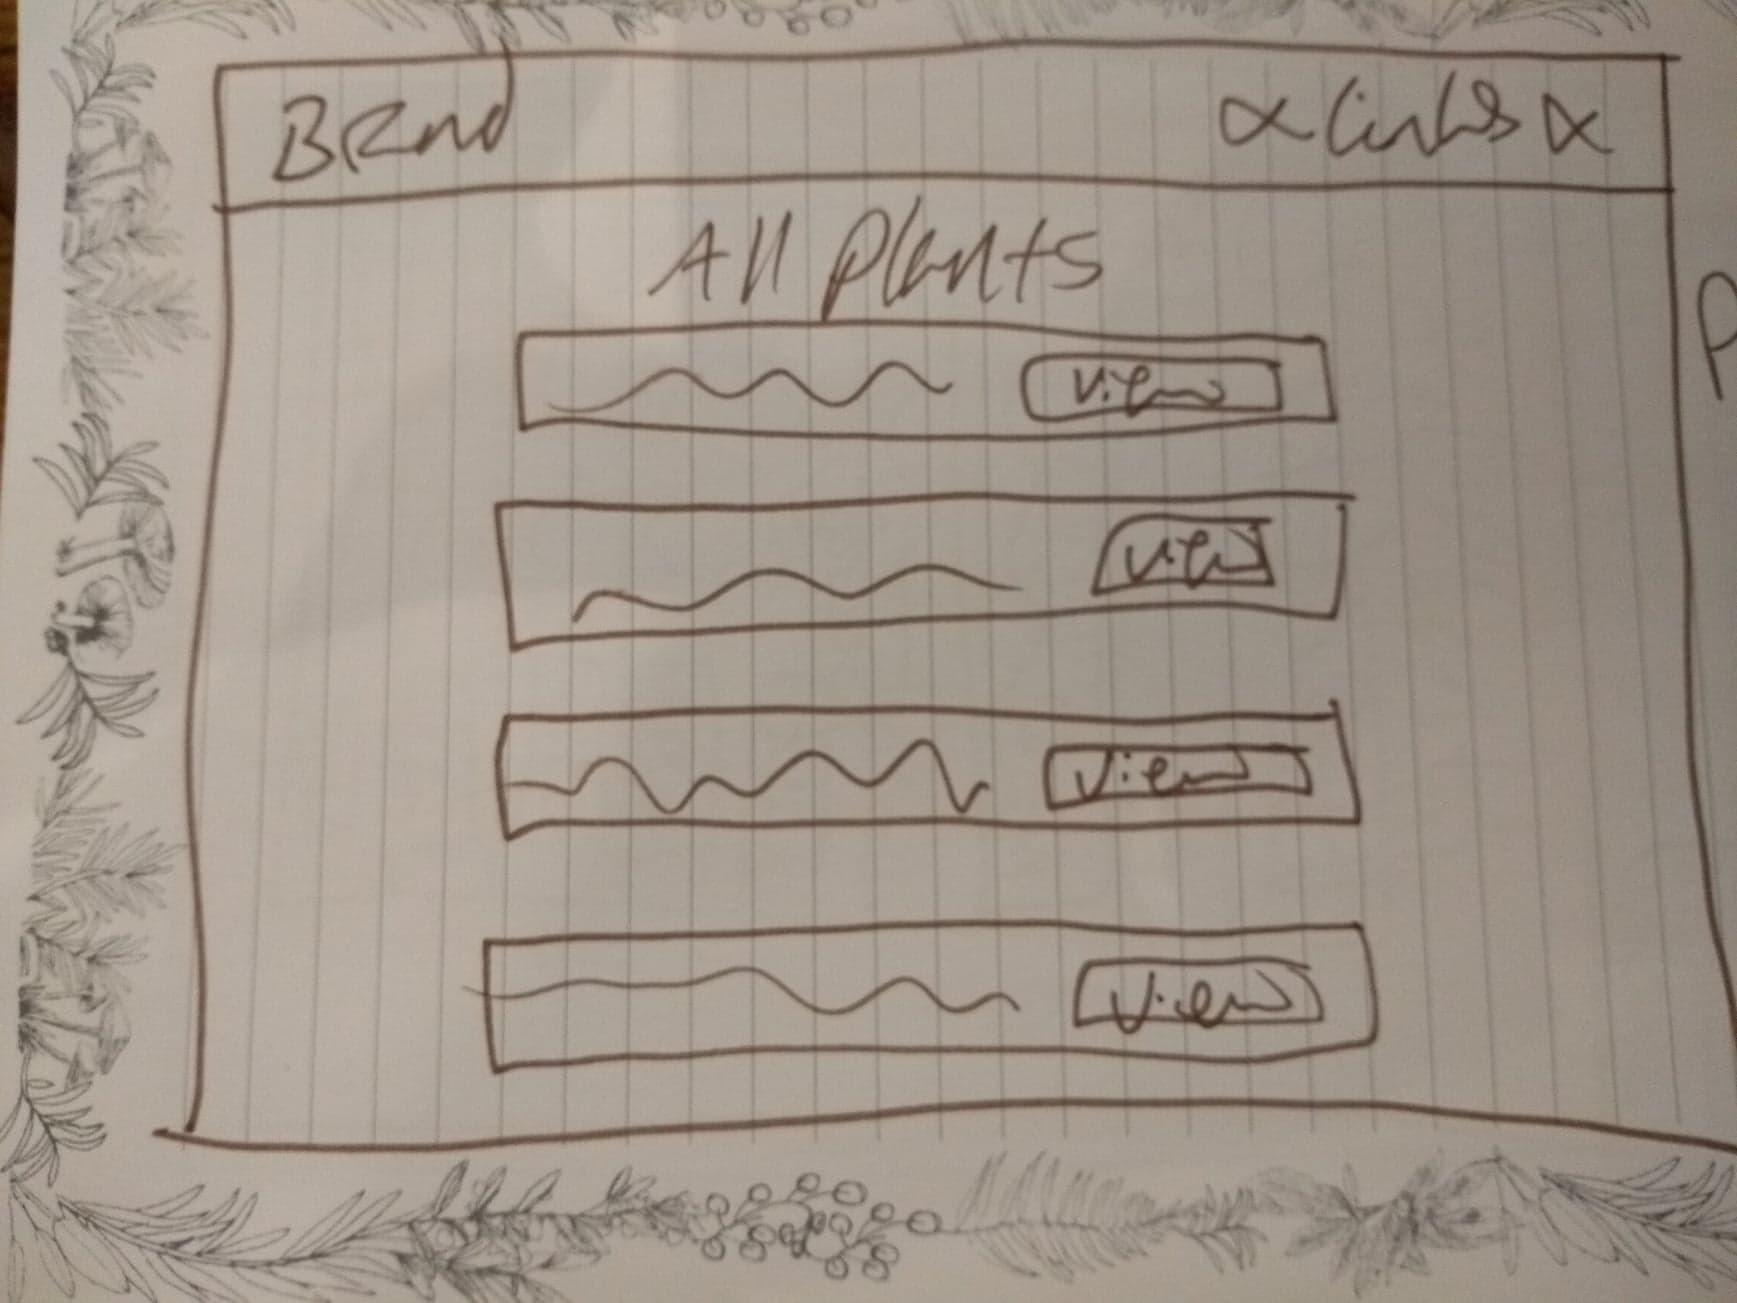 Brand ∝ links ∝
All Plants
View
View
View
View
P